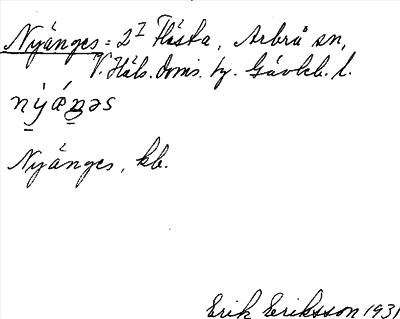 Nyänges = 2 I Flästa, Arbrå sn,
V. Häls. doms. tg. Gävleb. l.
Nyänges, kb.
Erik Eriksson 1931